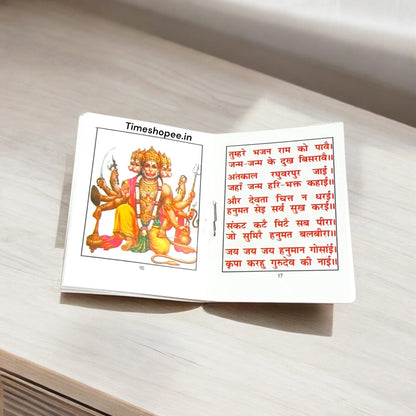 Timeshopee.in
तुम्हरे भजन राम को पावै।
जन्म-जन्म के दुख बिसरावै।
अंतकाल रघुवरपुर जाई।
जहाँ जन्म हरि-भक्त कहाई॥
और देवता चित्त न धरई।
हनुमत सेइ सर्व सुख करई॥
संकट कटै मिटै सब पीरा।
जो सुमिरै हनुमत बलबीरा॥
जय जय जय हनुमान गोसांई।
कृपा करहु गुरुदेव की नाई॥
16
17